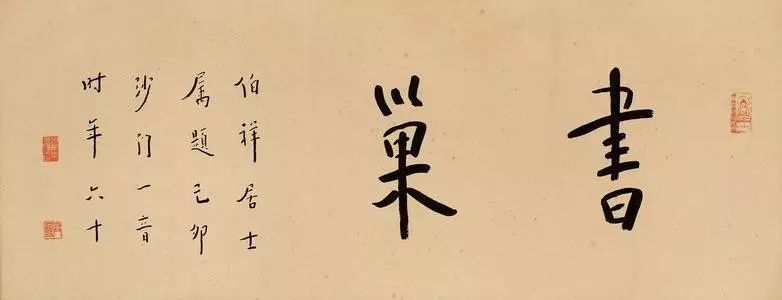 書巢
伯祥居士
属題己卯
沙门一音
时年六十